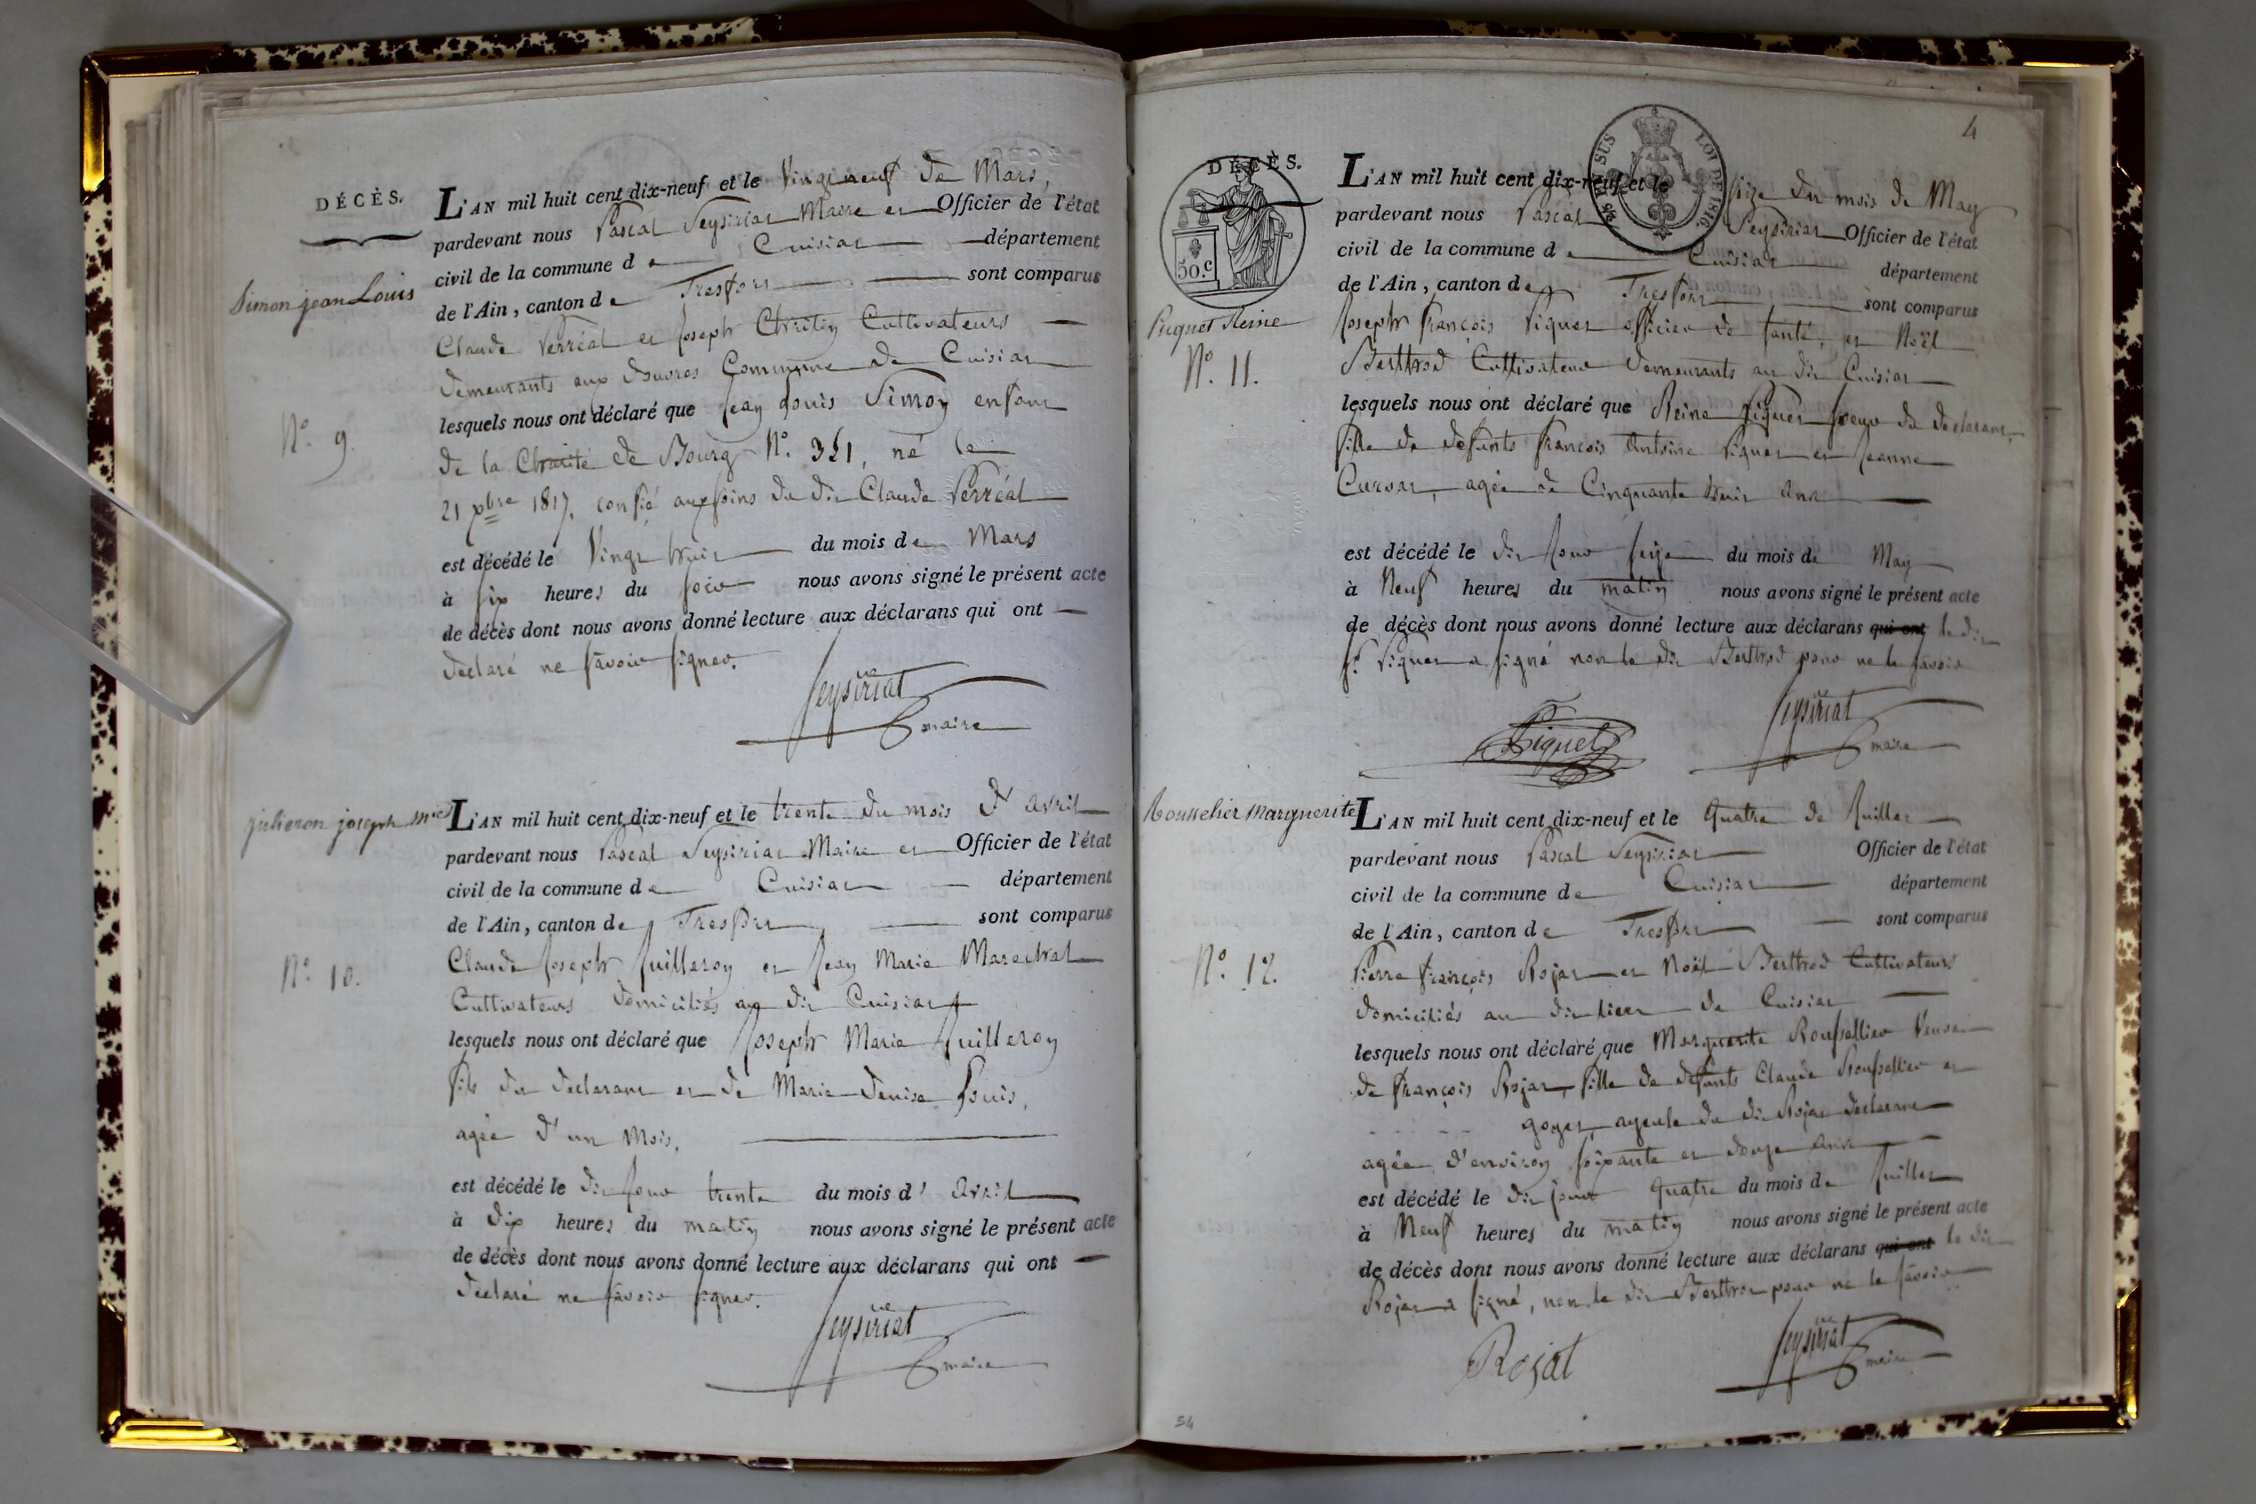 DÉCÈS.
Simon jean Louis
N.° 9.
L'AN mil huit cent dix-neuf et le Vingt neuf de Mars,
pardevant nous Pascal Seysiriat Maire et Officier de l'état
civil de la commune de Cuisiat département
de l'Ain, canton de Treffort sont comparus
Claude Perréal et Joseph Chritin Cultivateurs
demeurants aux douvres Commune de Cuisiat
lesquels nous ont déclaré que Jean Louis Simon enfant
de la Charité de Bourg N.° 351, né le
21 xbre 1817, confié aux soins du dit Claude Perréal
est décédé le Vingt huit du mois de Mars
à six heures du soir nous avons signé le présent acte
de décès dont nous avons donné lecture aux déclarans qui ont
déclaré ne savoir signer.
Seysiriat
maire
julieron joseph Mie
N.° 10.
L'AN mil huit cent dix-neuf et le trente du mois d'avril
pardevant nous Pascal Seysiriat Maire et Officier de l'état
civil de la commune de Cuisiat département
de l'Ain, canton de Treffort sont comparus
Claude Joseph Juilleron et Jean Marie Marechal
Cultivateurs domiciliés au dit Cuisiat
lesquels nous ont déclaré que Joseph Marie Juilleron
fils du declarant et de Marie denise Louis,
agée d'un Mois.
est décédé le dit jour trente du mois d'avril
à dix heures du matin nous avons signé le présent acte
de décès dont nous avons donné lecture aux déclarans qui ont
déclaré ne savoir signer.
Seysiriat
maire
4
DÉCÈS.
50.c
EN SUS
LOI DE 1816
Piquet Reine
N.° 11.
L'AN mil huit cent dix-neuf et le seize du mois de May
pardevant nous Pascal Seysiriat Officier de l'état
civil de la commune de Cuisiat département
de l'Ain, canton de Treffort sont comparus
Joseph françois Piquet officier de santé, et Noël
Berthod Cultivateur demeurants au dit Cuisiat
lesquels nous ont déclaré que Reine Piquet soeur du declarant,
fille de defunts françois Antoine Piquet et Jeanne
Curvat, agée de Cinquante huit ans
est décédé le dit jour seize du mois de May
à Neuf heures du matin nous avons signé le présent acte
de décès dont nous avons donné lecture aux déclarans qui ont le dit
Sr. Piquet a signé non le dit Berthod pour ne le savoir
Piquet
Seysiriat
maire
Rousselier Marguerite
N.° 12.
L'AN mil huit cent dix-neuf et le Quatre de Juillet
pardevant nous Pascal Seysiriat Officier de l'état
civil de la commune de Cuisiat département
de l'Ain, canton de Treffort sont comparus
Pierre françois Rojat et Noël Berthod Cultivateurs
domiciliés au dit lieu de Cuisiat
lesquels nous ont déclaré que Marguerite Roussellier Veuve
de françois Rojat, fille de defunts Claude Roussellier et
goyet, ayeule du dit Rojat declarant
agée d'environ soixante et douze ans
est décédé le dit jour Quatre du mois de Juillet
à Neuf heures du matin nous avons signé le présent acte
de décès dont nous avons donné lecture aux déclarans qui ont le dit
Rojat a signé, non le dit Berthod pour ne le savoir
Rojat
Seysiriat
maire
54